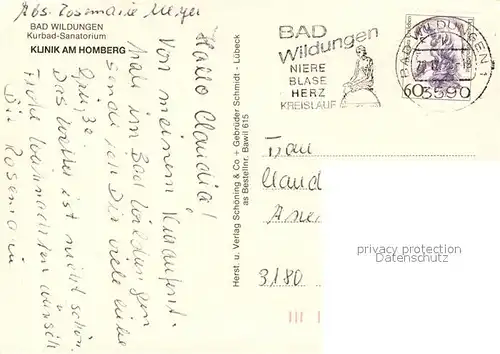 Abs. Rosemarie Meyer
BAD WILDUNGEN
Kurbad-Sanatorium
KLINIK AM HOMBERG
Hallo Claudia!
Von meinem Kuraufent.
halt in Bad Wildungen
sende ich Dir viele liebe
Grüße.
Das Wetter ist nicht schön.
Frohe Weihnachten wünscht
Dir Rosemarie
Herst. u. Verlag Schöning & Co + Gebrüder Schmidt - Lübeck
as Bestellnr. Bawil 615
BAD
Wildungen
NIERE
BLASE
HERZ
KREISLAUF
BAD WILDUNGEN 1
3590
60
Frau
Claud
3180
privacy protection
privacy protection